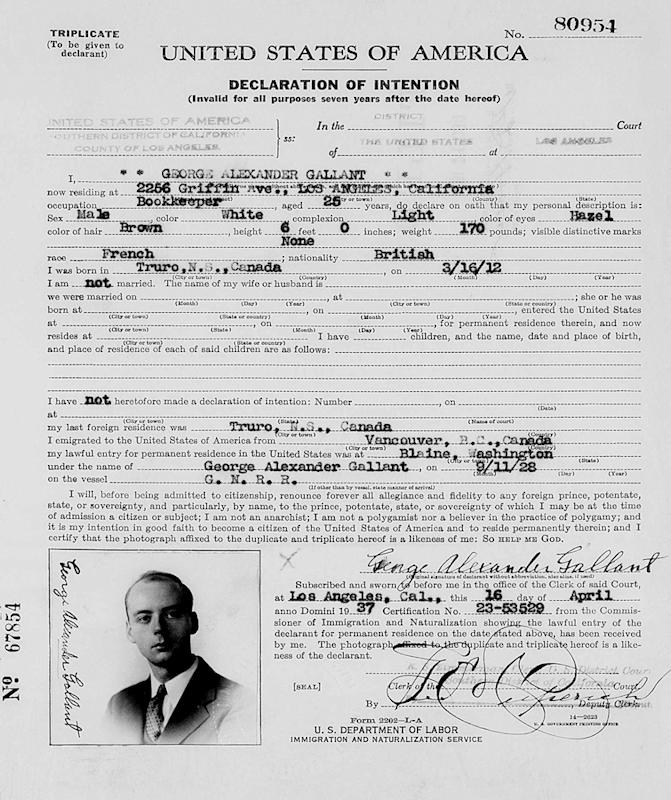 TRIPLICATE
(To be given to
declarant)
No. 80954
UNITED STATES OF AMERICA
DECLARATION OF INTENTION
(Invalid for all purposes seven years after the date hereof)
UNITED STATES OF AMERICA
SOUTHERN DISTRICT OF CALIFORNIA
COUNTY OF LOS ANGELES
ss:
In the DISTRICT Court
of THE UNITED STATES at LOS ANGELES
I, * * GEORGE ALEXANDER GALLANT * *
now residing at 2256 Griffin Ave., LOS ANGELES, California
occupation Bookkeeper, aged 25 years, do declare on oath that my personal description is:
Sex Male, color White, complexion Light, color of eyes Hazel
color of hair Brown, height 6 feet 0 inches; weight 170 pounds; visible distinctive marks
None
race French; nationality British
I was born in Truro, N.S., Canada, on 3/16/12
(City or town) (Country) (Month) (Day) (Year)
I am not married. The name of my wife or husband is
we were married on, at; she or he was
(Month) (Day) (Year) (City or town) (State or country)
born at, on, entered the United States
(City or town) (State or country) (Month) (Day) (Year)
at, on, for permanent residence therein, and now
(City or town) (State) (Month) (Day) (Year)
resides at. I have children, and the name, date and place of birth,
(City or town) (State or country)
and place of residence of each of said children are as follows:
I have not heretofore made a declaration of intention: Number, on
(Date)
at
(City or town) (State) (Name of court)
my last foreign residence was Truro, N.S., Canada
(City or town) (Country)
I emigrated to the United States of America from Vancouver, B.C., Canada
(City or town) (Country)
my lawful entry for permanent residence in the United States was at Blaine, Washington
(City or town) (State)
under the name of George Alexander Gallant, on 9/11/28
(Month) (Day) (Year)
on the vessel G. N. R. R.
(If other than by vessel, state manner of arrival)
I will, before being admitted to citizenship, renounce forever all allegiance and fidelity to any foreign prince, potentate,
state, or sovereignty, and particularly, by name, to the prince, potentate, state, or sovereignty of which I may be at the time
of admission a citizen or subject; I am not an anarchist; I am not a polygamist nor a believer in the practice of polygamy; and
it is my intention in good faith to become a citizen of the United States of America and to reside permanently therein; and I
certify that the photograph affixed to the duplicate and triplicate hereof is a likeness of me: So HELP ME GOD.
George Alexander Gallant
(Original signature of declarant without abbreviation, also alias, if used)
Subscribed and sworn to before me in the office of the Clerk of said Court,
at Los Angeles, Cal., this 16 day of April
anno Domini 1937 Certification No. 23-53529 from the Commis-
sioner of Immigration and Naturalization showing the lawful entry of the
declarant for permanent residence on the date stated above, has been received
by me. The photograph affixed to the duplicate and triplicate hereof is a like-
ness of the declarant.
U. S. District Court
[SEAL] Clerk of the Court.
By Deputy Clerk.
Form 2202-L-A
U. S. DEPARTMENT OF LABOR
IMMIGRATION AND NATURALIZATION SERVICE
14-2623
U. S. GOVERNMENT PRINTING OFFICE
George Alexander Gallant
No 67854